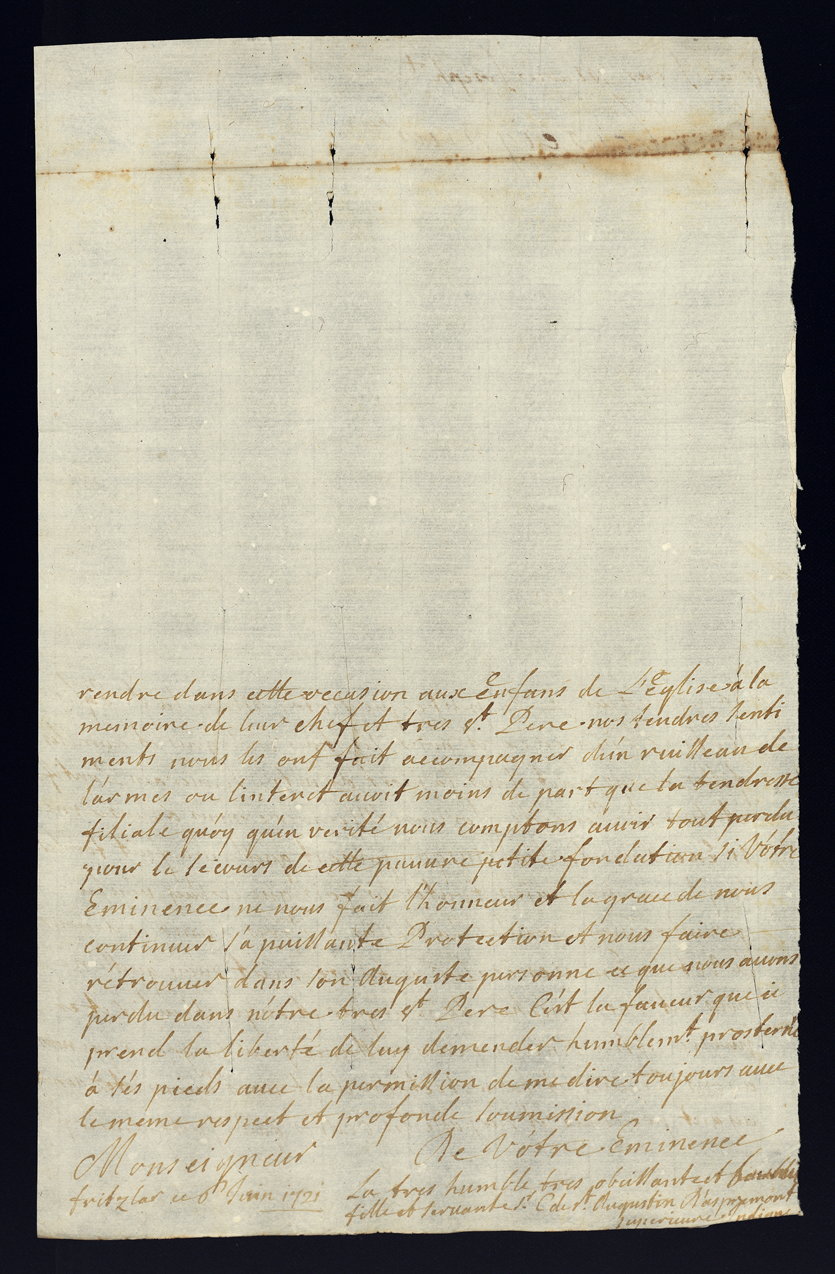 rendre dans cette occasion aux Enfans de L'Eglise à la
memoire de leur chef et tres st. Pere nos tendres senti
ments nous les ont fait accompagner d'un ruisseau de
larmes ou l'interet auoit moins de part que la tendresse
filiale quóy qu'en verité nous comptons auoir tout perdu
pour le secours de cette pauure petite fondation si Vótre
Eminence ne nous fait l'honneur et la grace de nous
continuer sa puissante Protection et nous faire
rétrouuer dans son Auguste personne ce que nous auons
perdu dans nótre tres st. Pere C'est la faueur que je
prend la liberté de luy demender humblemt. prosterné
á sés pieds auec la permission de me dire toujours auec
le meme respect et profonde soumission
Monseigneur De Votre Eminence
fritzlar ce 6e Juin 1721 La tres humble tres obeissante et
fille et seruante Sr. C de st. Augustin D'aspremont
superieure indigne